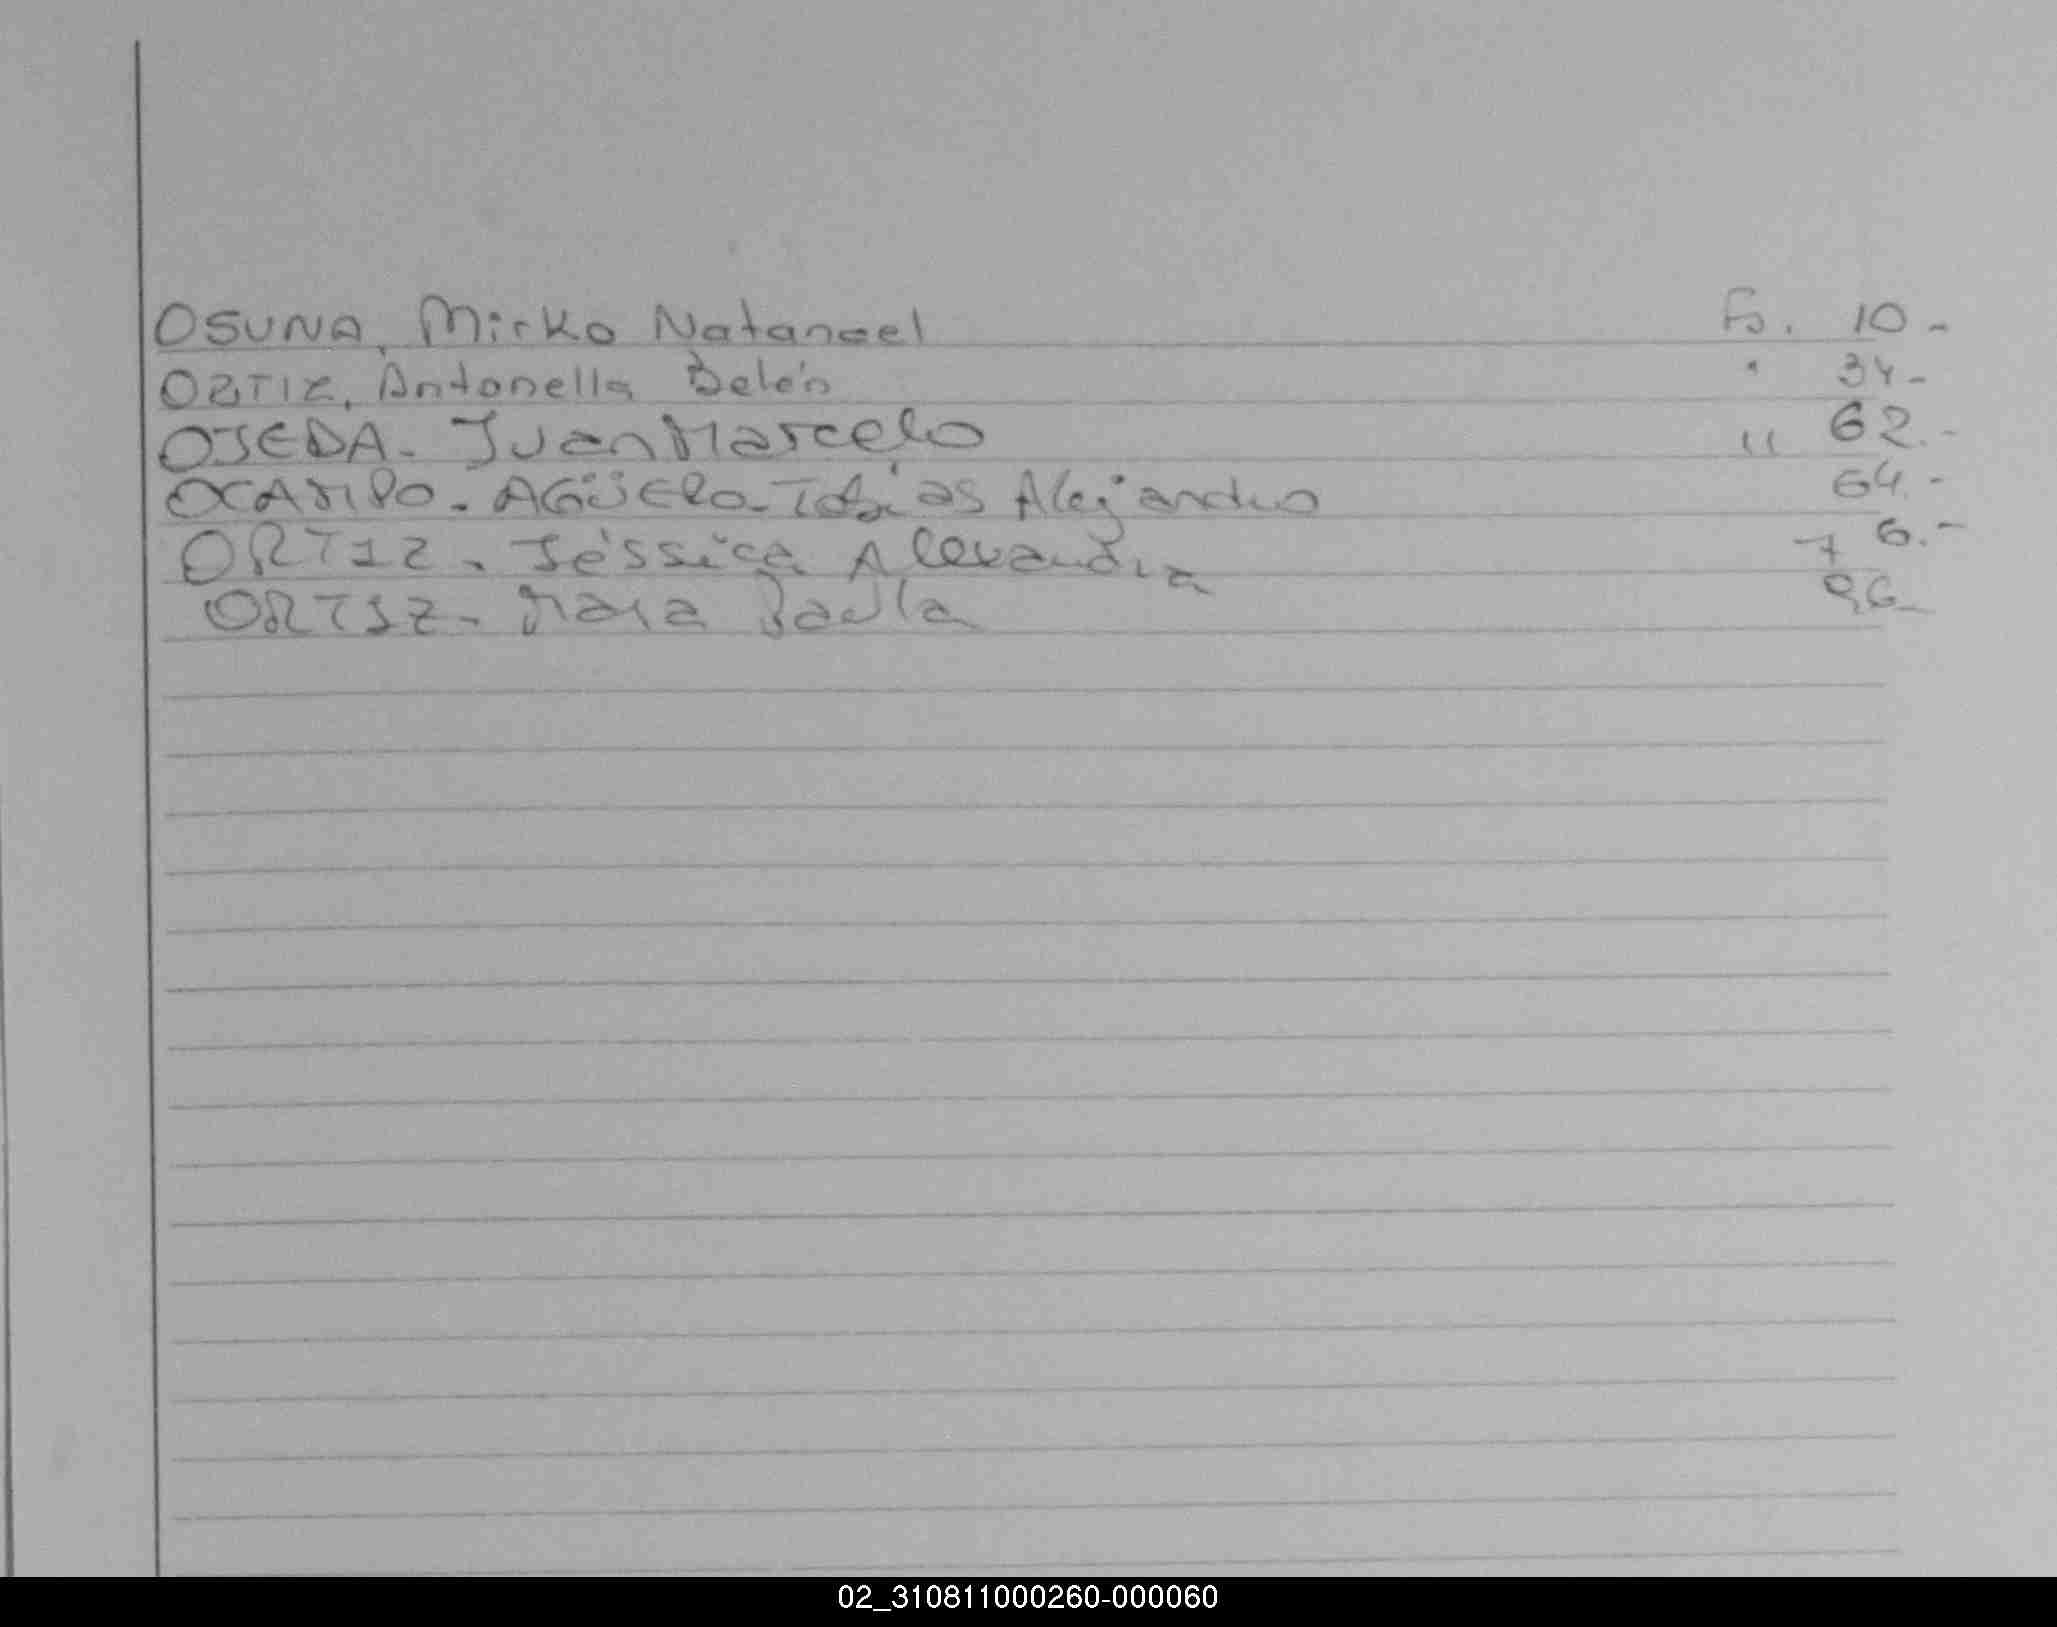 OSUNA, Mirko Natanael Fs. 10-
ORTIZ, Antonella Belén " 34-
OJEDA- Juan Marcelo " 62.-
OCAMPO- AGÜERO- Tobías Alejandro 64.-
ORTIZ- Jéssica Alexandra 76.-
ORTIZ- Mara Paula 96-
02_310811000260-000060